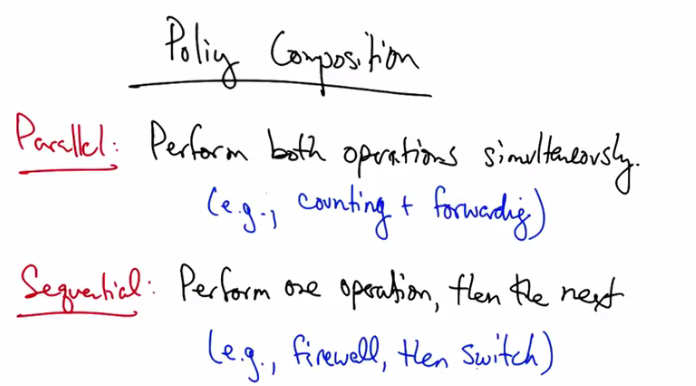 Policy Composition
Parallel: Perform both operations simultaneously.
(e.g., counting + forwarding)
Sequential: Perform one operation, then the next
(e.g., firewall, then switch)